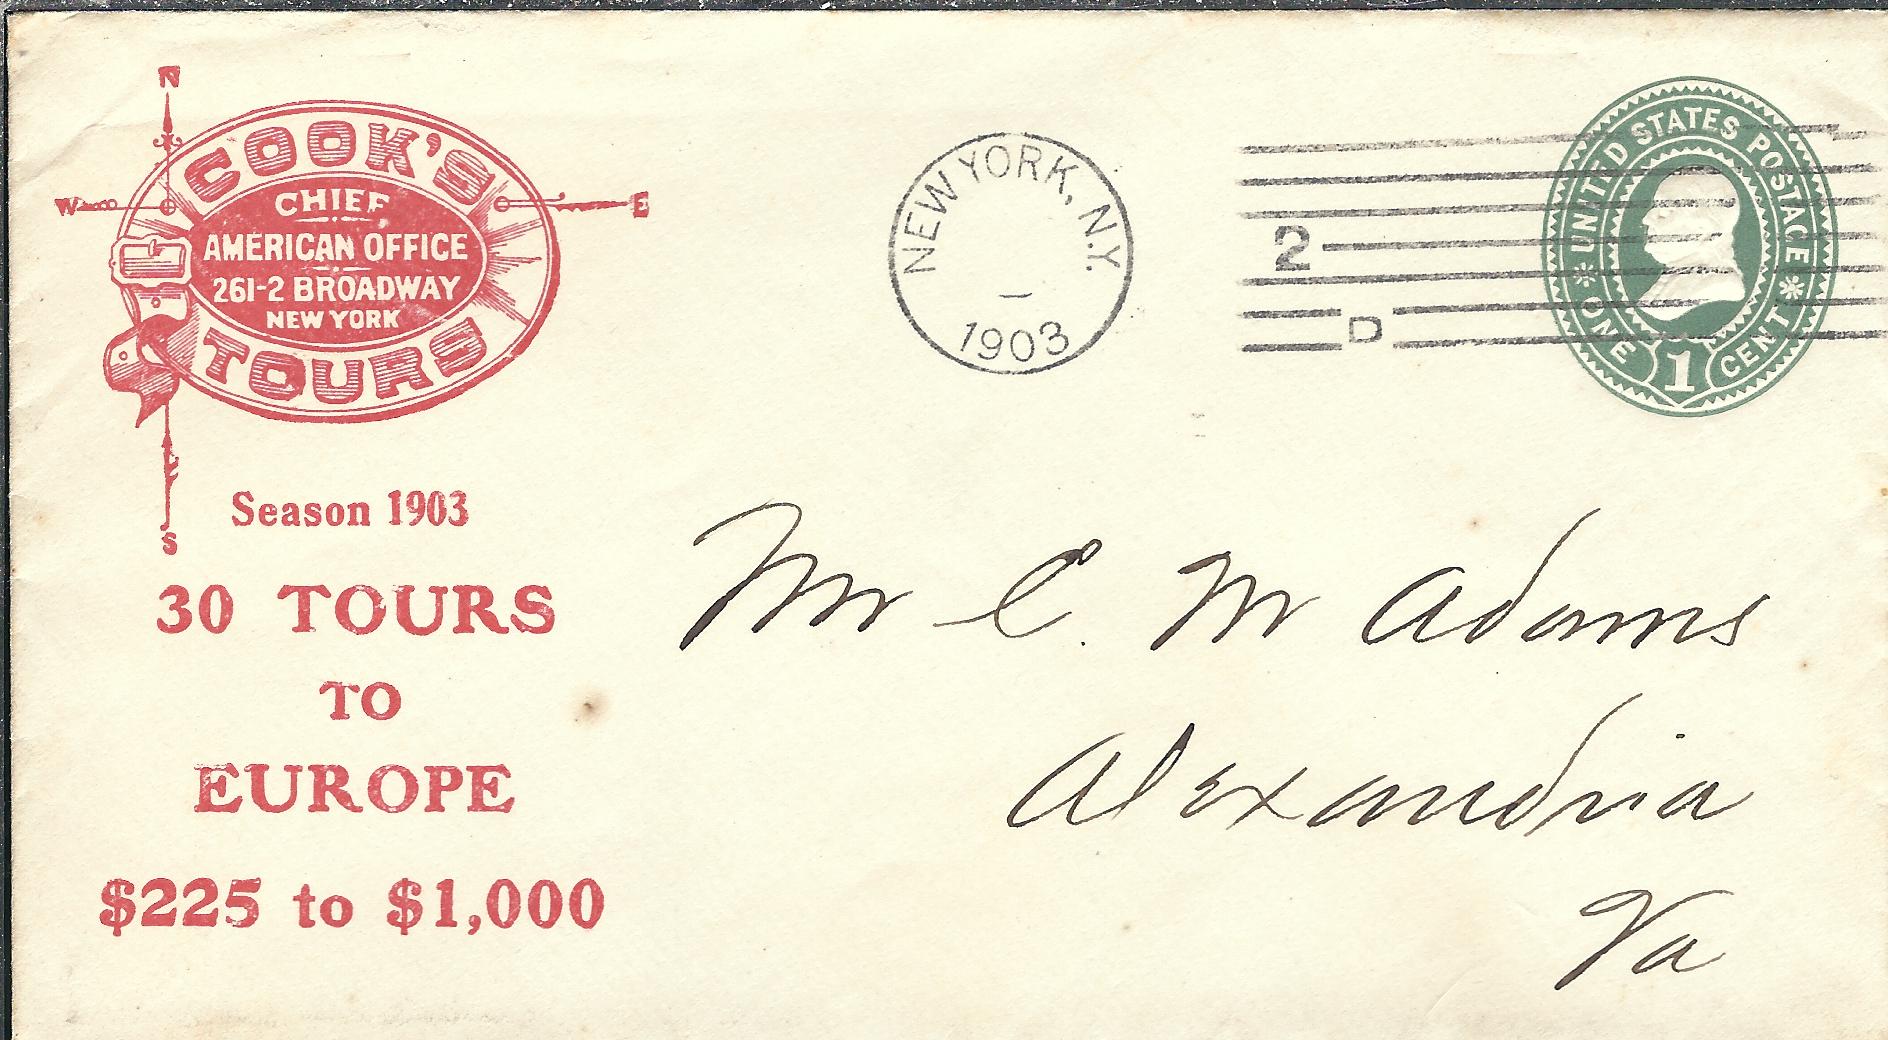 N
COOK'S
W E
CHIEF
AMERICAN OFFICE
261-2 BROADWAY
NEW YORK
TOURS
S
Season 1903
30 TOURS
TO
EUROPE
$225 to $1,000
NEW YORK, N.Y.
1903
2
D
UNITED STATES POSTAGE
ONE 1 CENT
Mr C. M Adams
Alexandria
Va